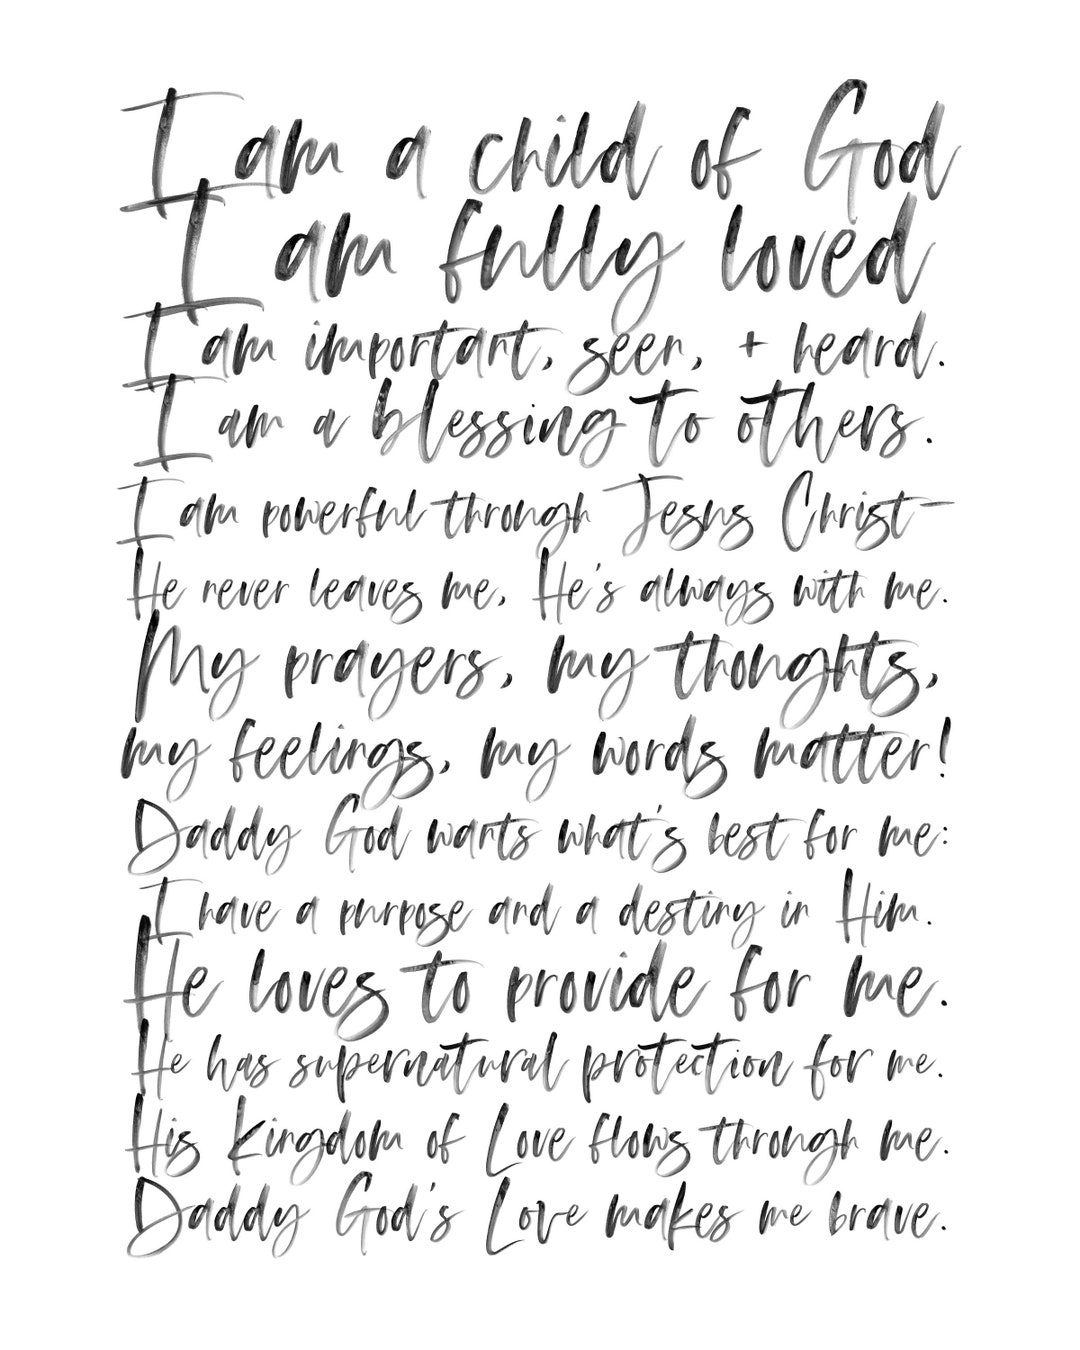 I am a child of God
I am fully loved
I am important, seen, + heard.
I am a blessing to others.
I am powerful through Jesus Christ-
He never leaves me, He's always with me.
My prayers, my thoughts,
my feelings, my words matter!
Daddy God wants what's best for me:
I have a purpose and a destiny in Him.
He loves to provide for me.
He has supernatural protection for me.
His Kingdom of Love flows through me.
Daddy God's Love makes me brave.